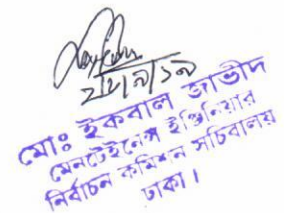 মোঃ ইকবাল জাভীদ
মেনটেইনেন্স ইঞ্জিনিয়ার
নির্বাচন কমিশন সচিবালয়
ঢাকা।